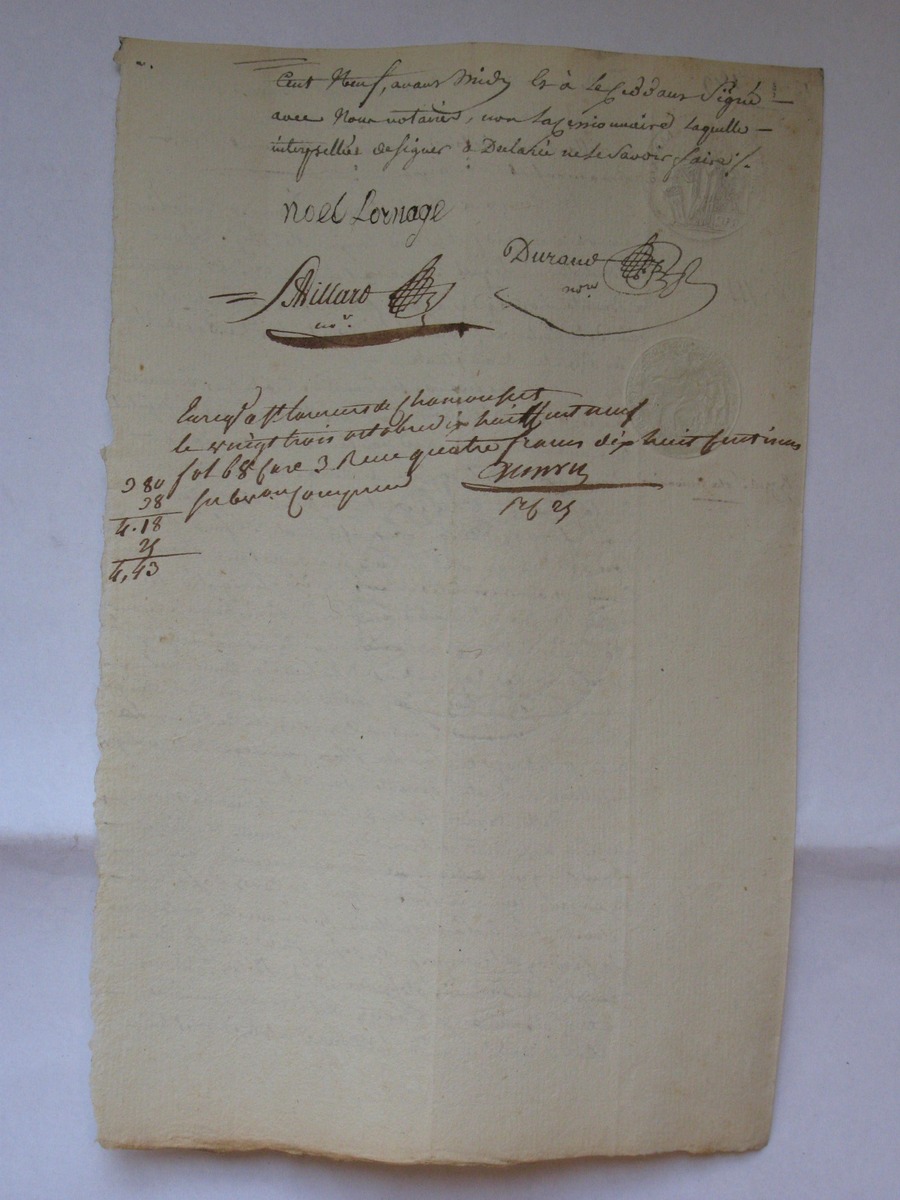 Cent Neuf, avant Midy et à le Ceddant Signé
avec Nous notaires, non la Cessionnaire laquelle
interpellée de signer a Declaré ne le Savoir faire ./.
Noel Lornage
Durand
nore
Millard
nor.
Enregé a St Laurent de Chamousset
le vingt trois octobre dix huit Cent neuf
fol 68 Case 3 Recu quatre francs dix huit Centimes
Subvon Comprise
3 80
38
4.18
25
4,43